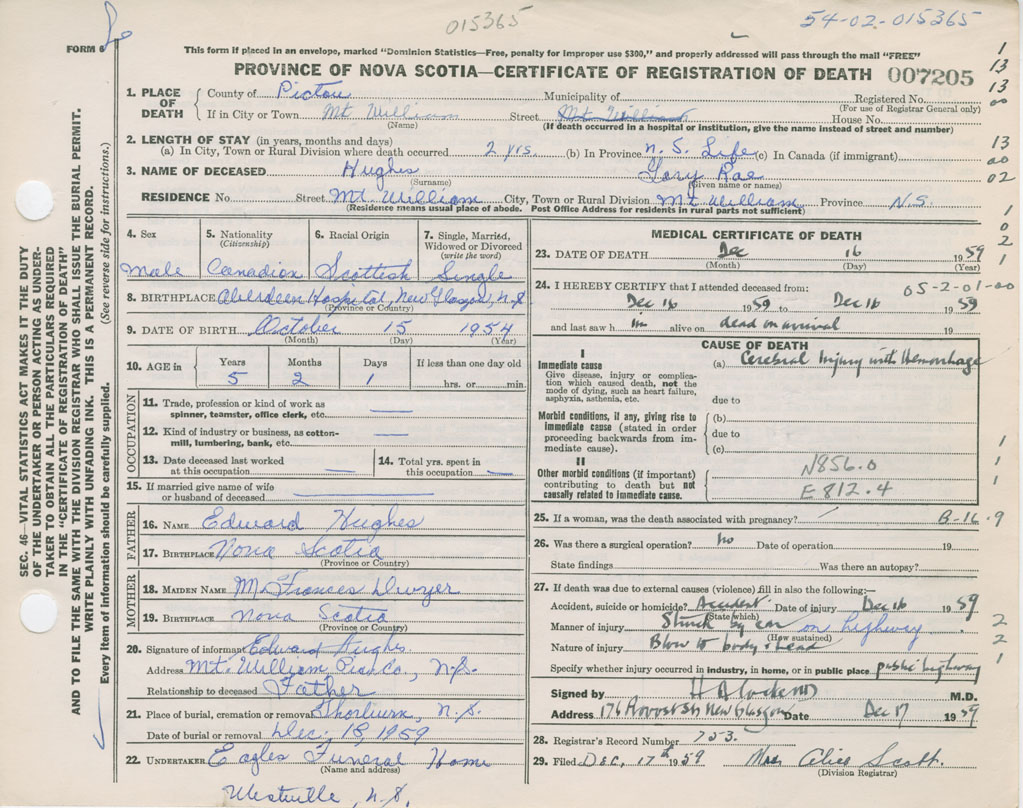 015365
54-02-015365
FORM 6
This form if placed in an envelope, marked "Dominion Statistics—Free, penalty for improper use $300," and properly addressed will pass through the mail "FREE"
PROVINCE OF NOVA SCOTIA—CERTIFICATE OF REGISTRATION OF DEATH 007205
1. PLACE OF DEATH
County of Pictou Municipality of Registered No.
(For use of Registrar General only)
If in City or Town Mt William Street Mt. William House No.
(Name) (If death occurred in a hospital or institution, give the name instead of street and number)
2. LENGTH OF STAY (in years, months and days)
(a) In City, Town or Rural Division where death occurred 2 yrs. (b) In Province N. S. Life (c) In Canada (if immigrant)
3. NAME OF DECEASED Hughes Gary Rae
(Surname) (Given name or names)
RESIDENCE No. Street Mt. William City, Town or Rural Division Mt William Province N.S.
(Residence means usual place of abode. Post Office Address for residents in rural parts not sufficient)
1
13
13
00
13
00
02
1
0
2
1
4. Sex
Male
5. Nationality
(Citizenship)
Canadian
6. Racial Origin
Scottish
7. Single, Married, Widowed or Divorced
(write the word)
Single
8. BIRTHPLACE Aberdeen Hospital, New Glasgow, N.S
(Province or Country)
9. DATE OF BIRTH October 15 1954
(Month) (Day) (Year)
10. AGE in Years Months Days If less than one day old
5 2 1 hrs. or min.
OCCUPATION
11. Trade, profession or kind of work as
spinner, teamster, office clerk, etc. —
12. Kind of industry or business, as cotton-
mill, lumbering, bank, etc. —
13. Date deceased last worked
at this occupation —
14. Total yrs. spent in
this occupation —
15. If married give name of wife
or husband of deceased —
FATHER
16. NAME Edward Hughes
17. BIRTHPLACE Nova Scotia
(Province or Country)
MOTHER
18. MAIDEN NAME M. Frances Dwyer
19. BIRTHPLACE Nova Scotia
(Province or Country)
20. Signature of informant Edward Hughes
Address Mt. William Pic. Co., N.S.
Relationship to deceased Father
21. Place of burial, cremation or removal Thorburn, N.S.
Date of burial or removal Dec. 18, 1959
22. UNDERTAKER Eagles Funeral Home
(Name and address)
Westville, N.S.
MEDICAL CERTIFICATE OF DEATH
23. DATE OF DEATH Dec 16 1959
(Month) (Day) (Year)
24. I HEREBY CERTIFY that I attended deceased from: 05-2-01-00
Dec 16 1959 to Dec 16 1959
and last saw him alive on dead on arrival 19
CAUSE OF DEATH
I
Immediate cause
Give disease, injury or complica-
tion which caused death, not the
mode of dying, such as heart failure,
asphyxia, asthenia, etc.
(a) Cerebral Injury with Hemorrhage
due to
Morbid conditions, if any, giving rise to
immediate cause (stated in order
proceeding backwards from im-
mediate cause).
(b)
due to
(c)
II
Other morbid conditions (if important)
contributing to death but not
causally related to immediate cause.
N856.0
E812.4
1
1
1
25. If a woman, was the death associated with pregnancy? B-16.9
26. Was there a surgical operation? No Date of operation 19
State findings Was there an autopsy?
27. If death was due to external causes (violence) fill in also the following:—
Accident, suicide or homicide? Accident Date of injury Dec 16 1959
(State which)
Manner of injury Struck by car on highway
(How sustained)
Nature of injury Blow to body & head
Specify whether injury occurred in industry, in home, or in public place public highway
2
2
1
Signed by M.D.
Address 176 Provost St New Glasgow Date Dec 17 1959
28. Registrar's Record Number 753.
29. Filed Dec, 17th 1959 Mrs. Alice Scott.
(Division Registrar)
SEC. 46—VITAL STATISTICS ACT MAKES IT THE DUTY
OF THE UNDERTAKER OR PERSON ACTING AS UNDER-
TAKER TO OBTAIN ALL THE PARTICULARS REQUIRED
IN THE "CERTIFICATE OF REGISTRATION OF DEATH"
AND TO FILE THE SAME WITH THE DIVISION REGISTRAR WHO SHALL ISSUE THE BURIAL PERMIT.
WRITE PLAINLY WITH UNFADING INK. THIS IS A PERMANENT RECORD.
Every item of information should be carefully supplied. (See reverse side for instructions.)